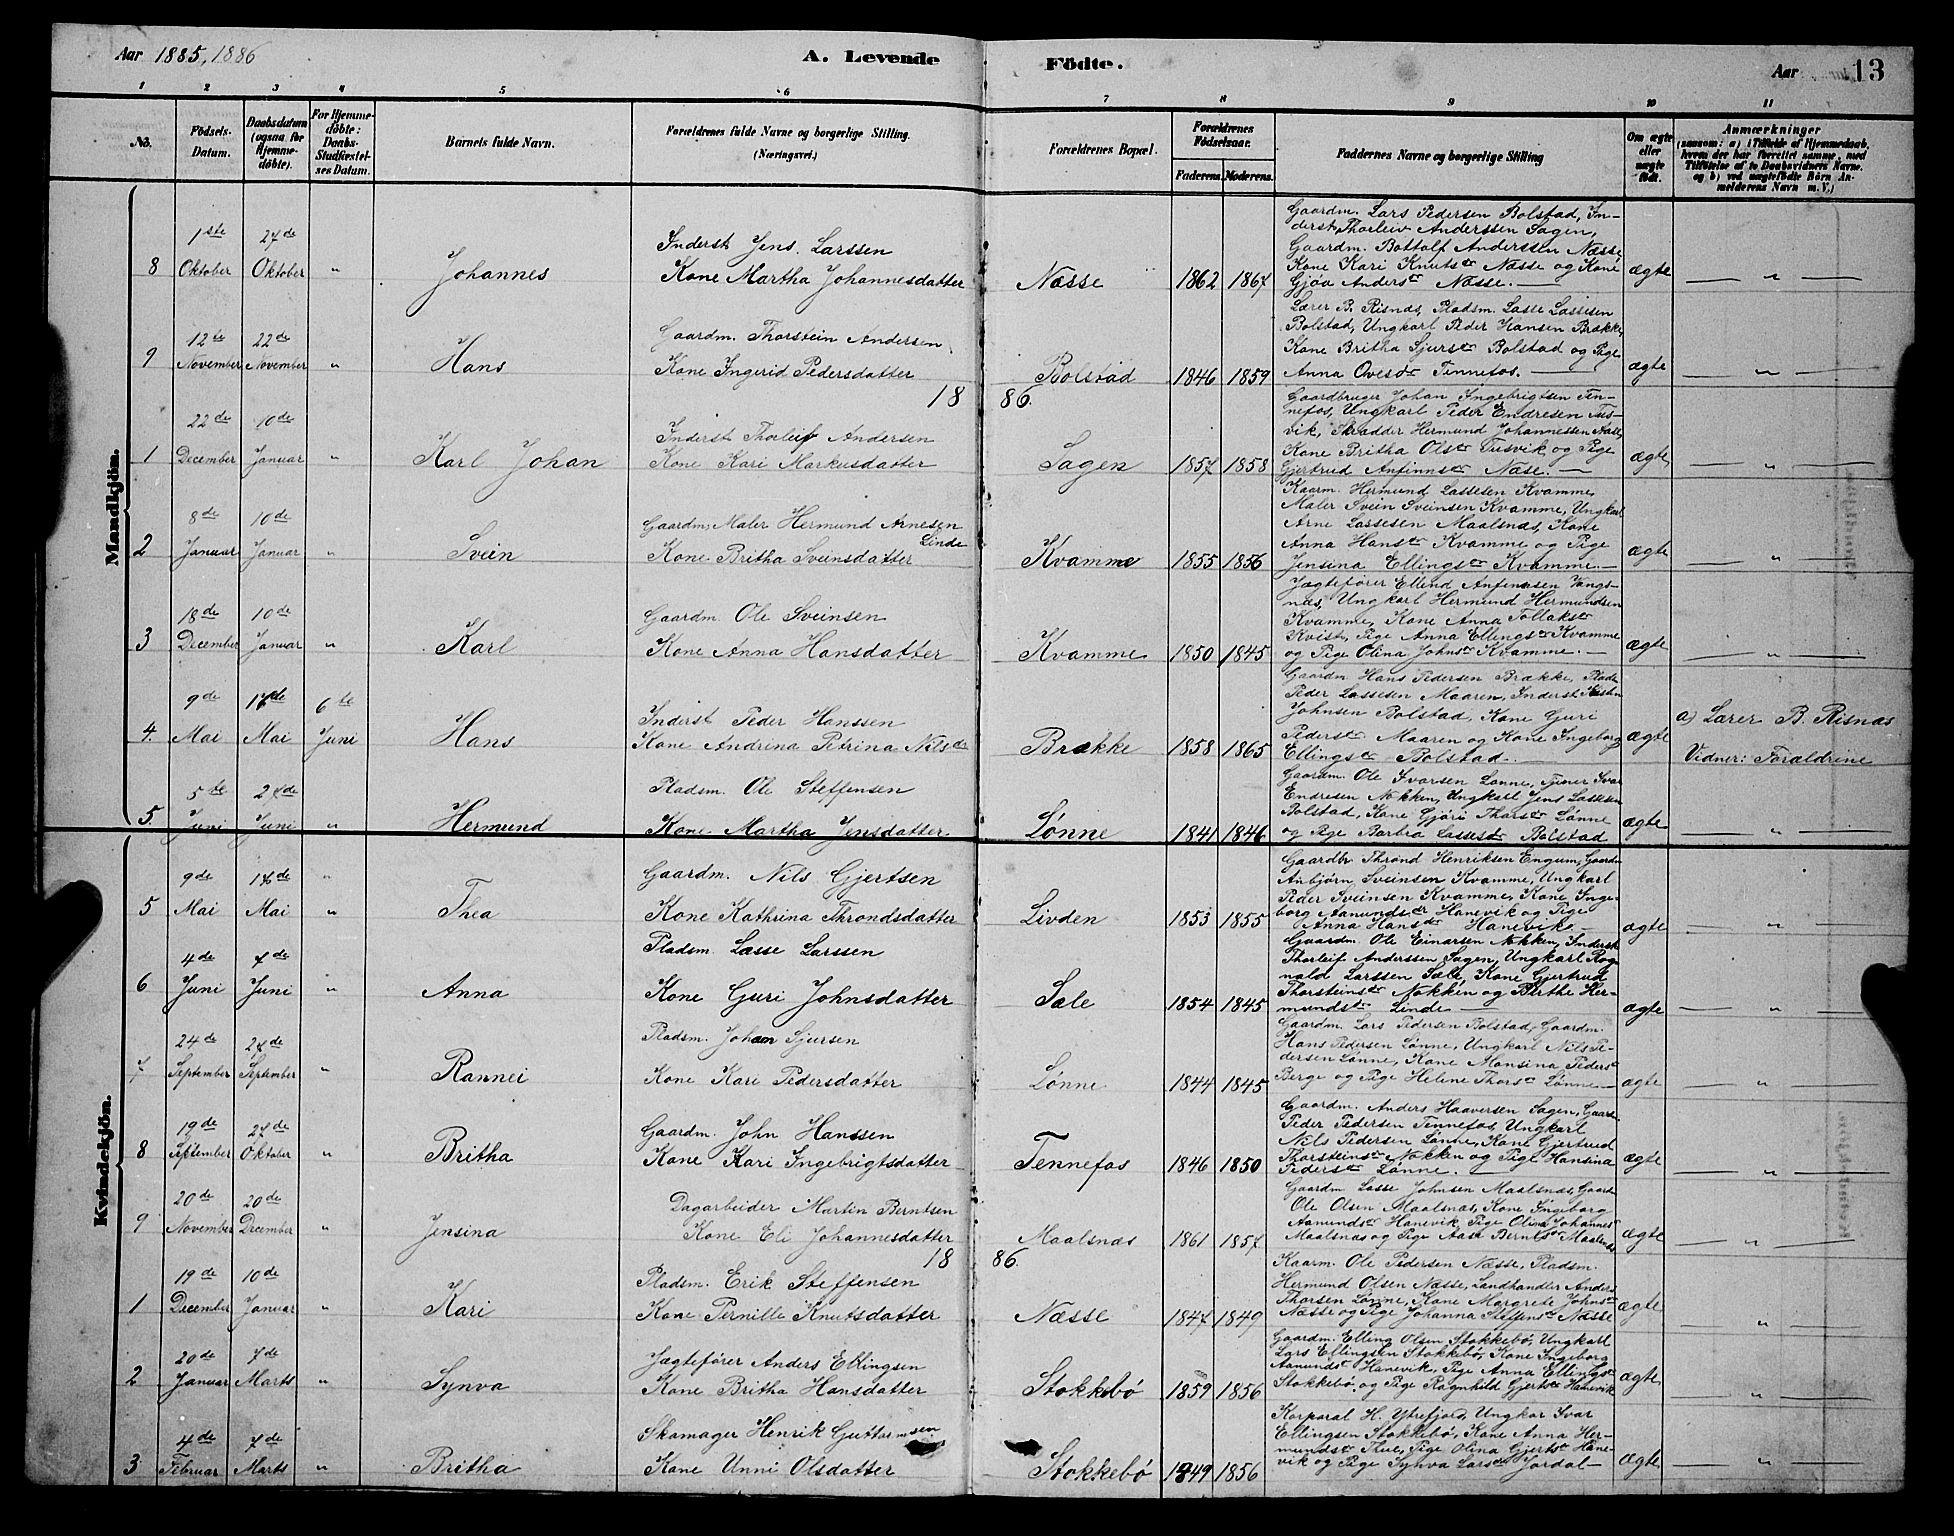 Aar 1885, 1886
A. Levende Födte.
Aar 13
1 2 3 4 5 6 7 8 9 10 11
No.
Födsels-Datum.
Daabsdatum (ogsaa for Hjemmedöbte).
For Hjemmedöbte: Daabs-Stadfæstelses Datum.
Barnets fulde Navn.
Forældrenes fulde Navne og borgerlige Stilling. (Næringsvei.)
Forældrenes Bopæl.
Forældrenes Födselsaar.
Faderens. Moderens.
Faddernes Navne og borgerlige Stilling
Om ægte eller uægte födt.
Anmærkninger
(saasom: a) i Tilfælde af Hjemmedaab, hvem der har forrettet samme, med Tilföielse af to Daabsvidners Navne, og b) ved uægtefödte Börn Anmelderens Navn m. V.)
Mandkjön.
8 1ste Oktober 27de Oktober " Johannes
Inderst Jens Larssen
Kone Martha Johannesdatter
Næsse 1862 1867
Gaardm. Lars Pedersen Bolstad, In-
derst Thorleiv Anderssen Sagen,
Gaardm. Bottolf Anderssen Næsse,
Kone Kari Knutsdr Næsse og Kone
Gjøa Andersdr Næsse. —
ægte — " —
9 12te November 22de November " Hans
Gaardm. Thorstein Andersen
Kone Ingerid Pedersdatter
Bolstad 1846 1859
Lærer B. Risnæs, Pladsm. Lasse Lassesen
Bolstad, Ungkarl Peder Hansen Brække,
Kone Britha Sjursdr Bolstad og Pige
Anna Ovesdr Tennefos. —
ægte — " —
1886.
1 22de December 10de Januar " Karl Johan
Inderst Thorleif Andersen
Kone Kari Markusdatter
Sagen 1857 1858
Gaardbruger Johan Ingebrigtsen Tin-
nefos, Ungkarl Peder Endresen Tus-
vik, Skrædder Hermund Johannessen
Kone Britha Olsdr Tusvik og Pige
Gjertrud Anfinnsdr Næse. —
ægte — " —
2 8de Januar 10de Januar " Svein
Gaardm. Maler Hermund Arnesen Linde
Kone Britha Sveinsdatter
Kvamme 1855 1856
Kaarm. Hermund Lassesen Kvamme,
Maler Svein Sveinsen Kvamme, Ungkarl
Arne Lassesen Maalsnæs, Kone
Anna Hansdr Kvamme og Pige
Jensina Ellingsdr Kvamme. —
ægte — " —
3 18de December 10de Januar " Karl
Gaardm. Ole Sveinsen
Kone Anna Hansdatter
Kvamme 1850 1845
Jægtefører Ellend Anfinnsen Vangs-
næs, Ungkarl Hermund Hermundsen
Kvamme, Kone Anna Tollaksdr
Kvist, Pige Anna Ellingsdr Kvamme
og Pige Olina Johnsdr Kvamme. —
ægte — " —
4. 9de Mai 16de Mai 6te Juni Hans
Inderst Peder Hanssen
Kone Andrina Petrina Nilsdr
Brække 1858 1865
Gaardm Hans Pedersen Brække, Plads
Peder Lassesen Maaren, Inderst
Johnsen Bolstad, Kone Guri
Pedersdr Maaren og Kone Ingeborg
Ellingsdr Bolstad. —
ægte
a) Lærer B. Risnæs
Vidner: Forældrene
5. 5te Juni 27de Juni " Hermund
Pladsm. Ole Steffensen
Kone Martha Jensdatter
Lønne 1841 1846
Gaardm. Ole Ivarsen Lønne, Tjener Ivar
Endresen Nokken, Ungkarl Jens Lassesen
Bolstad, Kone Gjøri Thorsdr Lønne
og Pige Barbra Lassesdr Bolstad
ægte — " —
Kvindekjön.
5 9de Mai 16de Mai " Thea
Gaardm. Nils Gjertsen
Kone Kathrina Throndsdatter
Livden 1853 1855
Gaardbr Thrond Henriksen Engum, Gaardm
Anbjørn Sveinsen Kvamme, Ungkarl
Peder Sveinsen Kvamme, Kone Inge-
borg Aamundsdr Hanevik og Pige
Anna Hansdr Hanevik. —
ægte — " —
6 4de Juni 7de Juni " Anna
Pladsm. Lasse Larssen
Kone Guri Johnsdatter
Sæle 1854 1845
Gaardm. Ole Einarsen Nokken, Inderst
Thorleif Anderssen Sagen, Ungkarl Rog-
nald Larssen Sæle, Kone Gjertrud
Thorsteinsdr Nokken og Birthe Her-
mundsdr Linde —
ægte — " —
7 24de September 27de September " Rannei
Pladsm. Johan Sjursen
Kone Kari Pedersdatter
Lønne 1844 1845
Gaardm. Lars Pedersen Bolstad, Gaardm.
Hans Pedersen Lønne, Ungkarl Nils Pe-
dersen Lønne, Kone Monsina Pedersdr
Berge og Pige Helene Thorsdr Lønne —
ægte — " —
8 19de September 27de Oktober " Britha
Gaardm. John Hanssen
Kone Kari Ingebrigtsdatter
Tennefos 1846 1850
Gaardm. Anders Haaversen Sagen, Gaardm
Peder Pedersen Tinnefos, Ungkarl
Nils Pedersen Lønne, Kone Gjertrud
Thorsteinsdr Nokken og Pige Hansina
Pedersdr Lønne. —
ægte — " —
9 20de November 20de December " Jensina
Dagarbeider Martin Berntsen
Kone Eli Johannesdatter
Maalsnæs 1861 1857
Gaardm Lasse Johnsen Maalsnæs, Gaardm
Ole Olsen Maalsnæs, Kone Ingeborg
Aamundsdr Hanevik, Pige Olina Johannesdr
Maalsnæs og Pige Aase Berntsdr Maalsnæs
ægte — " —
1886.
1 19de December 10de Januar " Kari
Pladsm. Erik Steffensen
Kone Pernille Knutsdatter
Næsse 1847 1849
Kaarm. Ole Pedersen Næsse, Pladsm.
Hermund Olsen Næsse, Landhandler Anders
Thorsen Lønne, Kone Margrete Johnsdr
Næsse og Pige Johanna Steffensdr Næsse
ægte — " —
2 20de Januar 7de Marts " Synva
Jægtefører Anders Ellingsen
Kone Britha Hansdatter
Stokkebø 1859 1856
Gaardm. Elling Olsen Stokkebø, Ungkarl
Lars Ellingsen Stokkebø, Kone Ingeborg
Aamundsdr Hanevik, Pige Anna Ellingsdr
Stokkebø og Pige Ragnhild Gjertsdr Hanevik
ægte — " —
3 4de Februar 7de Marts " Britha
Skomager Henrik Guttormsen
Kone Unni Olsdatter
Stokkebø 1849 1856
Korporal H. Ytrefjord, Ungkar Ivar
Ellingsen Stokkebø, Kone Anna Her-
mundsdr Thue, Pige Olina Gjertsdr Hane-
vik og Pige Synva Larsdr Jordal —
ægte — " —